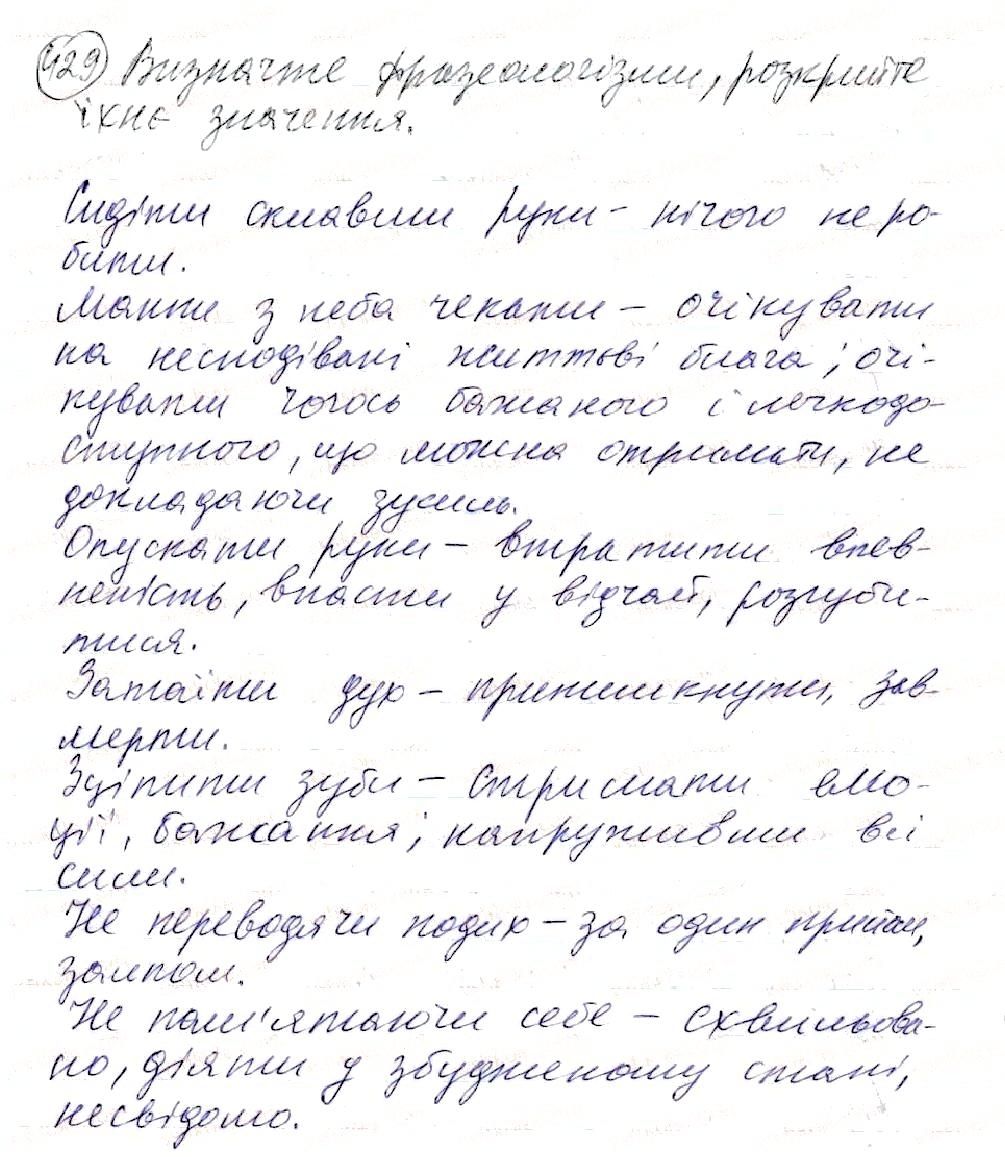 429 Визначте фразеологізми, розкрийте
їхнє значення.
Сидіти склавши руки – нічого не ро-
бити.
Манни з неба чекати – очікувати
на несподівані життєві блага; очі-
кувати чогось бажаного і легкодо-
ступного, що можна отримати, не
докладаючи зусиль.
Опускати руки – втратити впев-
неність, впасти у відчай, розгуби-
тися.
Затаїти дух – притихнути, зав-
мерти.
Зціпити зуби – стримати емо-
ції, бажання; напруживши всі
сили.
Не переводячи подих – за один прийом,
залпом.
Не пам'ятаючи себе – схвильова-
но, діяти у збудженому стані,
несвідомо.